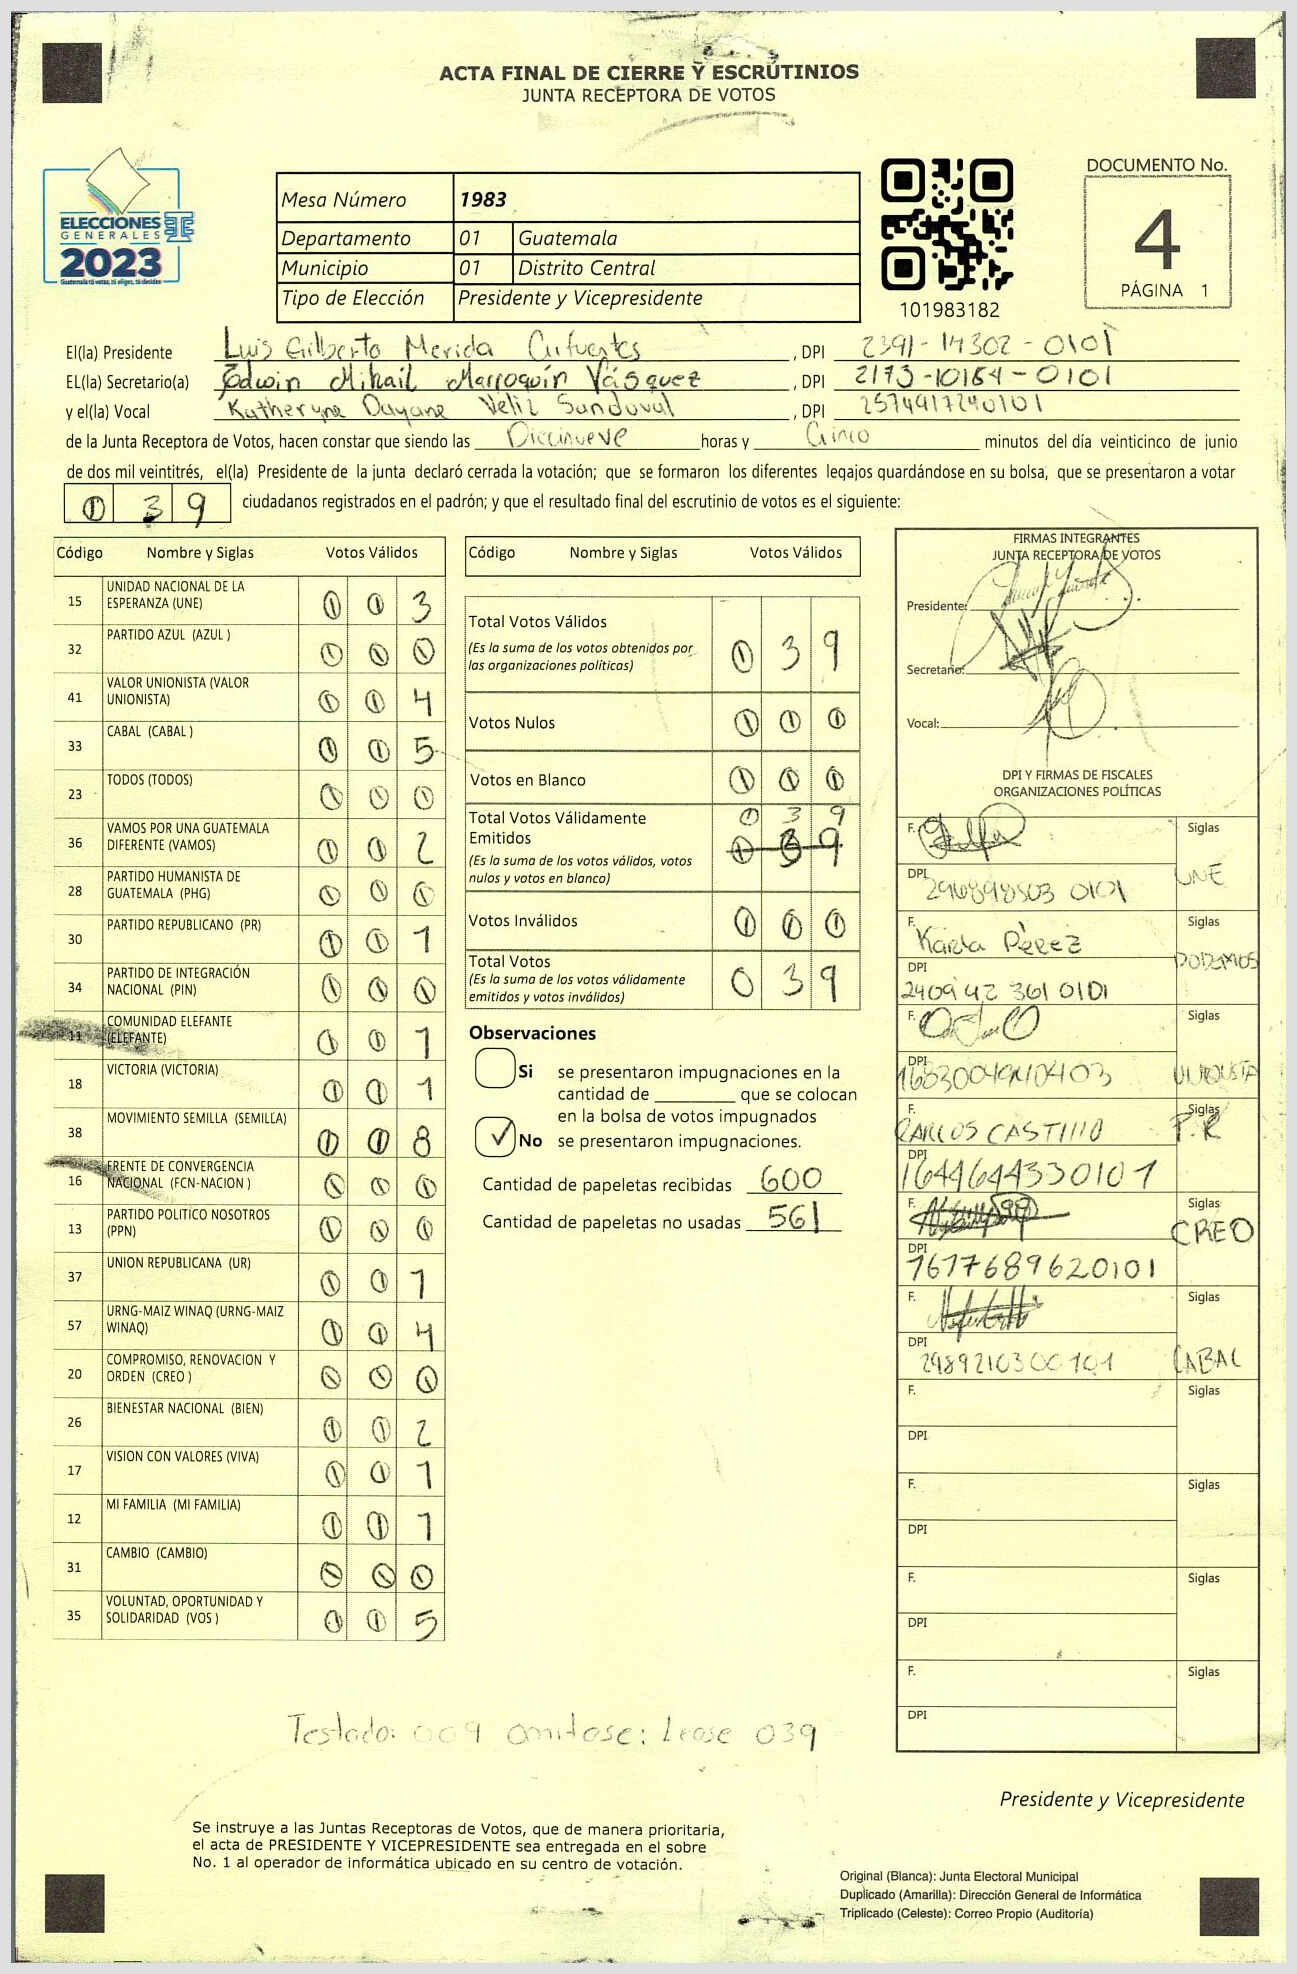 ACTA FINAL DE CIERRE Y ESCRUTINIOS
JUNTA RECEPTORA DE VOTOS
ELECCIONES
GENERALES
2023
Guatemala tú votas, tú eliges, tú decides
Mesa Número 1983
Departamento 01 Guatemala
Municipio 01 Distrito Central
Tipo de Elección Presidente y Vicepresidente
101983182
DOCUMENTO No.
4
PÁGINA 1
El(la) Presidente Luis Gilberto Merida Cifuentes , DPI 2391-14302-0101
EL(la) Secretario(a) Edwin Mihail Marroquín Vásquez , DPI 2173-10164-0101
y el(la) Vocal Katheryne Dayane Veliz Sandoval , DPI 2574917240101
de la Junta Receptora de Votos, hacen constar que siendo las Diecinueve horas y Cinco minutos del día veinticinco de junio
de dos mil veintitrés, el(la) Presidente de la junta declaró cerrada la votación; que se formaron los diferentes legajos quardándose en su bolsa, que se presentaron a votar
0 3 9 ciudadanos registrados en el padrón; y que el resultado final del escrutinio de votos es el siguiente:
Código Nombre y Siglas Votos Válidos
15 UNIDAD NACIONAL DE LA ESPERANZA (UNE) 0 0 3
32 PARTIDO AZUL (AZUL ) 0 0 0
41 VALOR UNIONISTA (VALOR UNIONISTA) 0 0 4
33 CABAL (CABAL ) 0 0 5
23 TODOS (TODOS) 0 0 0
36 VAMOS POR UNA GUATEMALA DIFERENTE (VAMOS) 0 0 2
28 PARTIDO HUMANISTA DE GUATEMALA (PHG) 0 0 0
30 PARTIDO REPUBLICANO (PR) 0 0 1
34 PARTIDO DE INTEGRACIÓN NACIONAL (PIN) 0 0 0
11 COMUNIDAD ELEFANTE (ELEFANTE) 0 0 1
18 VICTORIA (VICTORIA) 0 0 1
38 MOVIMIENTO SEMILLA (SEMILLA) 0 0 8
16 FRENTE DE CONVERGENCIA NACIONAL (FCN-NACION ) 0 0 0
13 PARTIDO POLITICO NOSOTROS (PPN) 0 0 0
37 UNION REPUBLICANA (UR) 0 0 1
57 URNG-MAIZ WINAQ (URNG-MAIZ WINAQ) 0 0 4
20 COMPROMISO, RENOVACION Y ORDEN (CREO ) 0 0 0
26 BIENESTAR NACIONAL (BIEN) 0 0 2
17 VISION CON VALORES (VIVA) 0 0 1
12 MI FAMILIA (MI FAMILIA) 0 0 1
31 CAMBIO (CAMBIO) 0 0 0
35 VOLUNTAD, OPORTUNIDAD Y SOLIDARIDAD (VOS ) 0 0 5
Código Nombre y Siglas Votos Válidos
Total Votos Válidos 0 3 9
(Es la suma de los votos obtenidos por
las organizaciones políticas)
Votos Nulos 0 0 0
Votos en Blanco 0 0 0
Total Votos Válidamente 0 3 9
Emitidos 0 3 9
(Es la suma de los votos válidos, votos
nulos y votos en blanco)
Votos Inválidos 0 0 0
Total Votos 0 3 9
(Es la suma de los votos válidamente
emitidos y votos inválidos)
Observaciones
Si se presentaron impugnaciones en la
cantidad de ________ que se colocan
en la bolsa de votos impugnados
No se presentaron impugnaciones.
Cantidad de papeletas recibidas 600
Cantidad de papeletas no usadas 561
FIRMAS INTEGRANTES
JUNTA RECEPTORA DE VOTOS
Presidente:
Secretario:
Vocal:
DPI Y FIRMAS DE FISCALES
ORGANIZACIONES POLÍTICAS
F. Siglas
DPI 296898503 0101 UNE
F. Karla Pérez Siglas
DPI 2409 42 361 0101 PODEMOS
F. Siglas
DPI UNIONISTA
F. CARLOS CASTILLO Siglas P.R
DPI 1644644330101
F. Siglas CREO
DPI 1617689620101
F. Siglas
DPI 2989210300101 CABAL
F. Siglas
DPI
F. Siglas
DPI
F. Siglas
DPI
F. Siglas
DPI
Testado: 009 Omitase: Lease 039
Presidente y Vicepresidente
Se instruye a las Juntas Receptoras de Votos, que de manera prioritaria,
el acta de PRESIDENTE Y VICEPRESIDENTE sea entregada en el sobre
No. 1 al operador de informática ubicado en su centro de votación.
Original (Blanca): Junta Electoral Municipal
Duplicado (Amarilla): Dirección General de Informática
Triplicado (Celeste): Correo Propio (Auditoría)